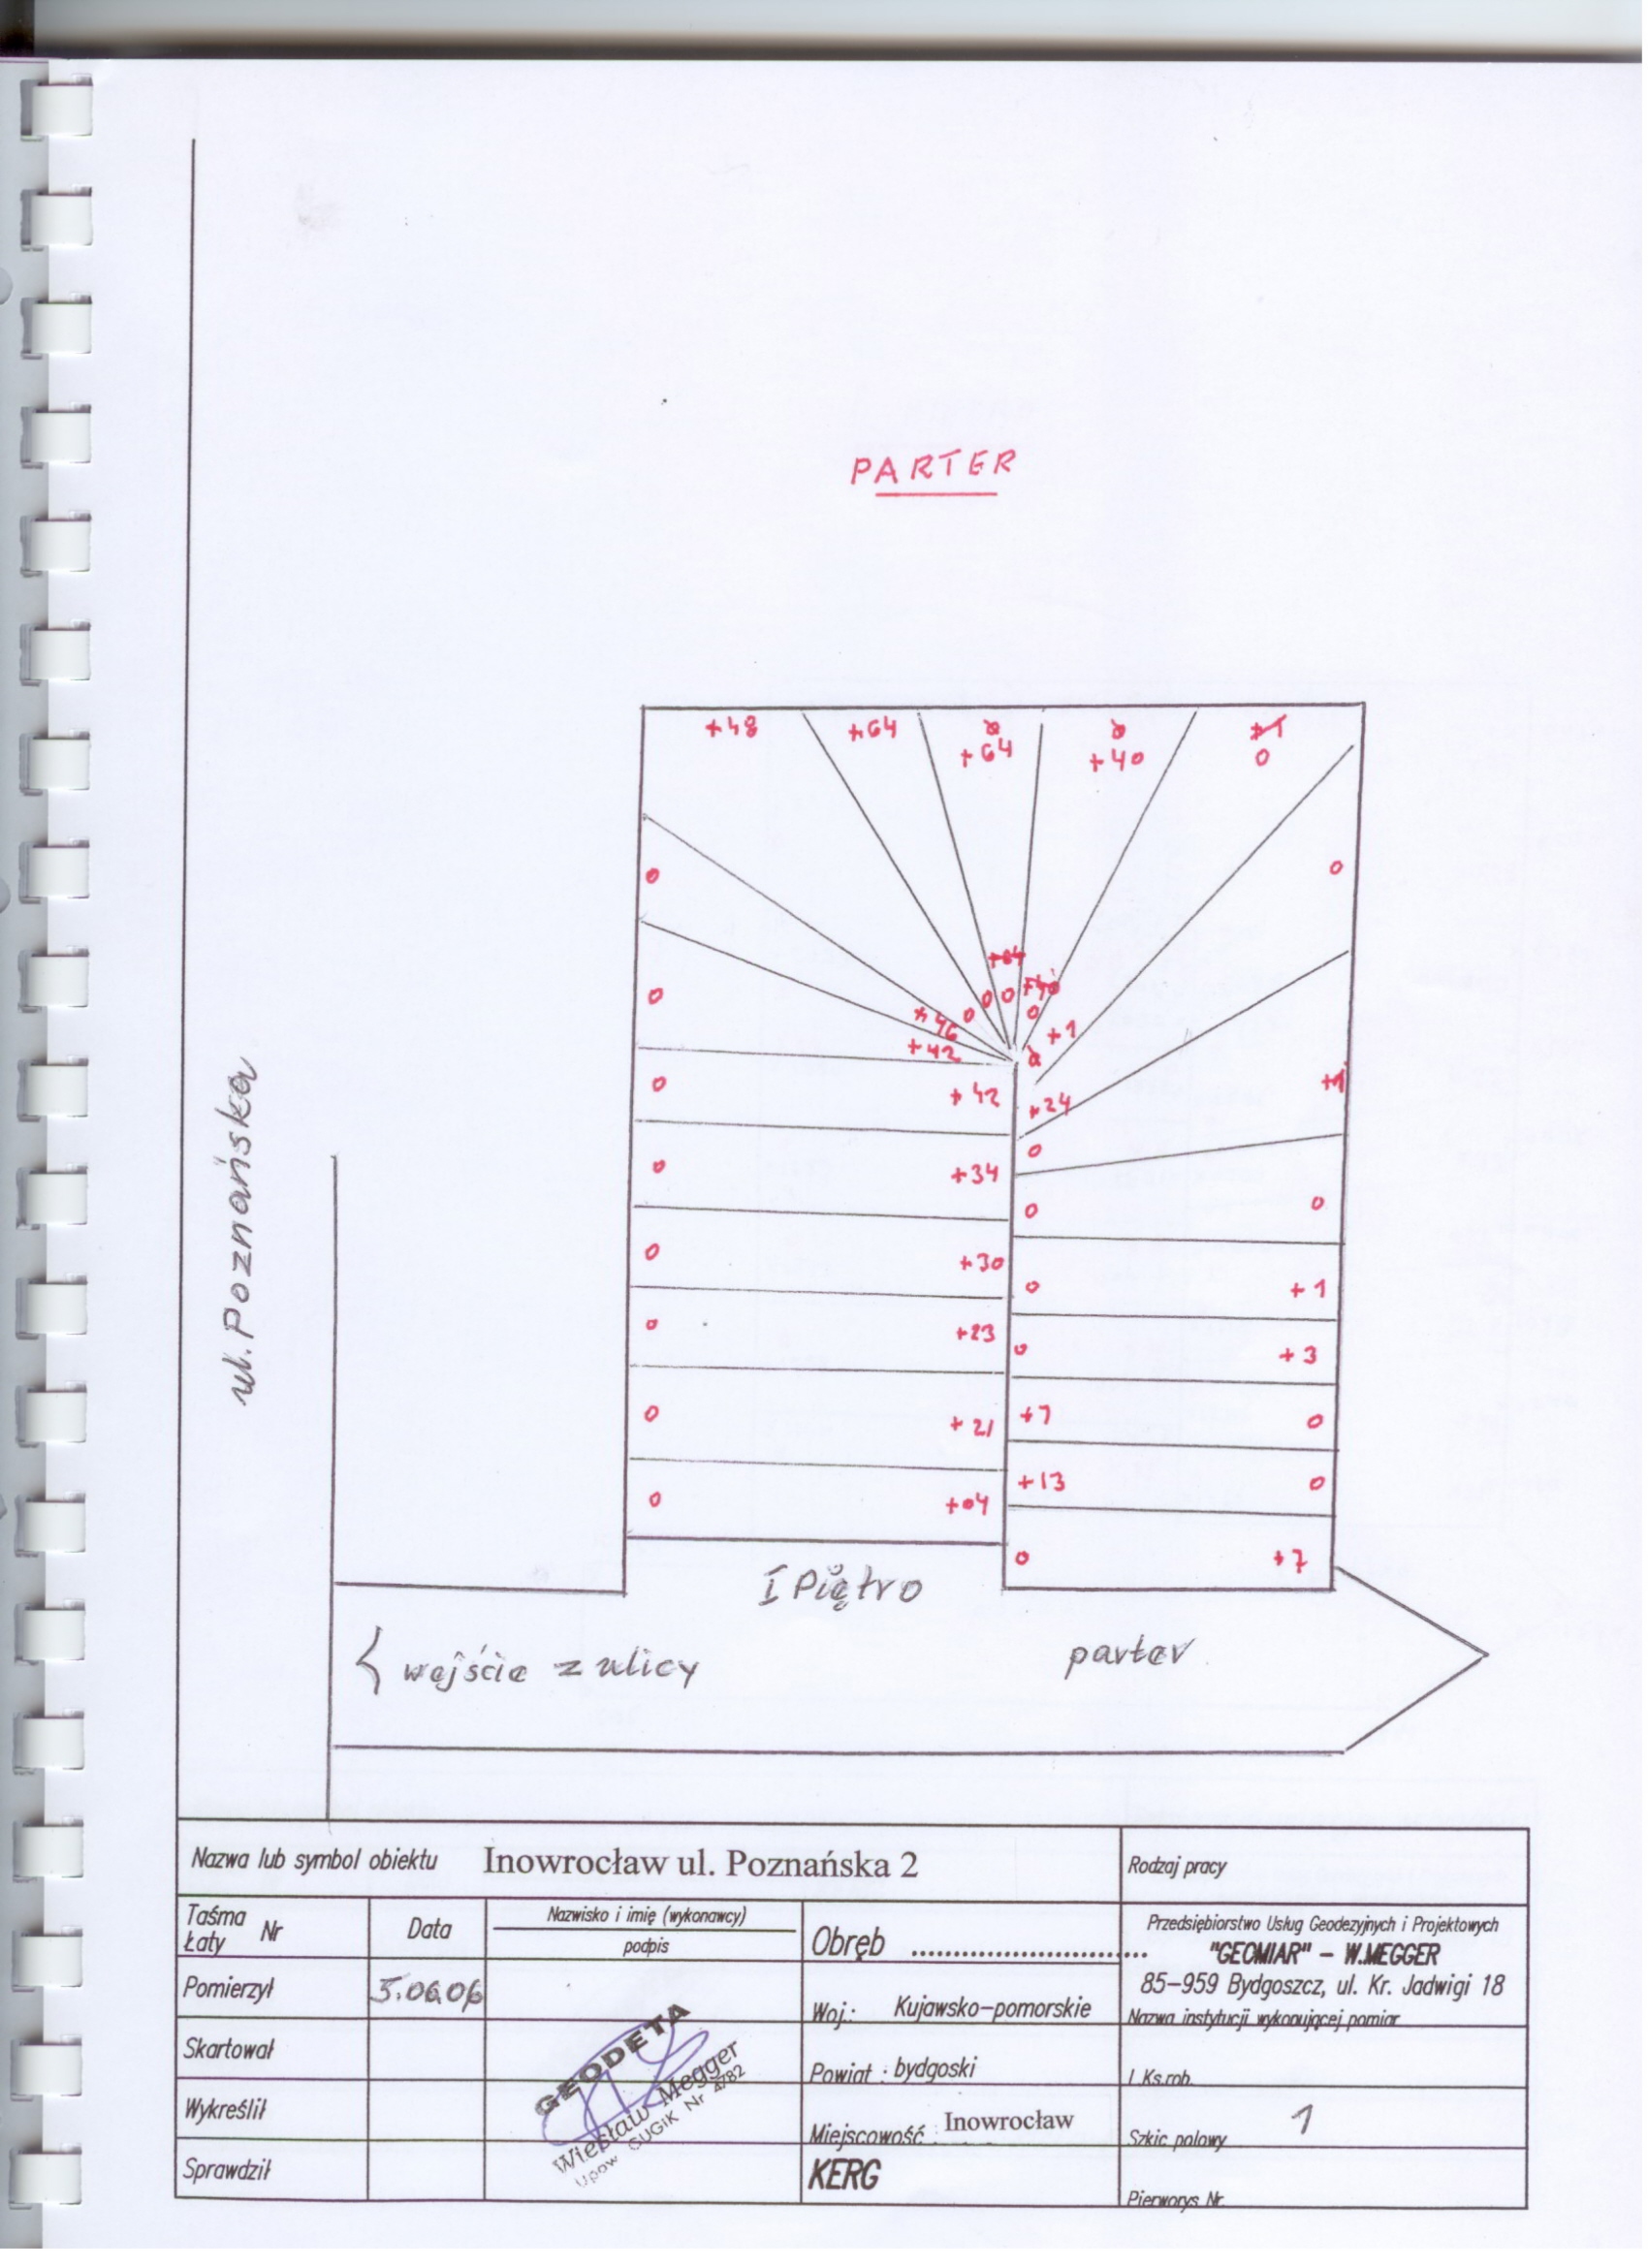 PARTER
+48 +64 +64 +40 0
0 0
0 0 0 0
+46 +1
+42
0 +42 +24 +1
0 +34 0
0 0
0 +30 0 +1
0 +23 0 +3
0 +21 +7 0
+13 0
0 +04
0 +7
ul. Poznańska
I Piętro
wejście z ulicy
parter
Nazwa lub symbol obiektu Inowrocław ul. Poznańska 2
Rodzaj pracy
Taśma Łaty Nr
Data
Nazwisko i imię (wykonawcy)
podpis
Obręb
Przedsiębiorstwo Usług Geodezyjnych i Projektowych
"GEOMIAR" – W.MEGGER
85–959 Bydgoszcz, ul. Kr. Jadwigi 18
Nazwa instytucji wykonującej pomiar
Pomierzył 5.06.06
Woj.: Kujawsko–pomorskie
Skartował
Powiat : bydgoski
l. Ks.rob.
Wykreślił
Miejscowość : Inowrocław
Szkic polowy 1
Sprawdził
KERG
Pierworys Nr.
GEODETA
Wiesław Megger
Upow. GUGiK Nr 4782